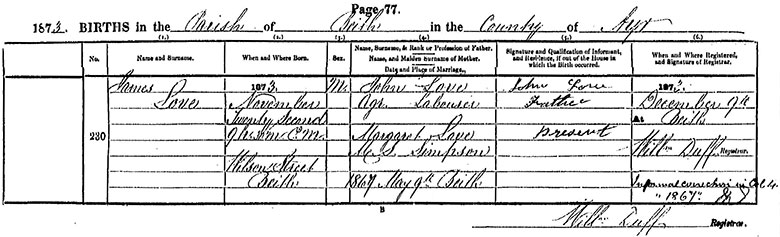 Page 77.
1873. BIRTHS in the Parish of Beith in the County of Ayr
(1.) (2.) (3.) (4.) (5.) (6.)
No. Name and Surname. When and Where Born. Sex. Name, Surname, & Rank or Profession of Father. Name, and Maiden Surname of Mother. Date and Place of Marriage. Signature and Qualification of Informant, and Residence, if out of the House in which the Birth occurred. When and Where Registered, and Signature of Registrar.
James 1873. M. John Love John Love 1873.
Love November Agr. Labourer Father December 9th
Twenty Second At Beith
230 P.M. Margaret Love Present
M.S. Simpson Willm Duff Registrar.
Wilson Street
Beith 1867 May 9th Beith Informal correction in Col. 4.
"1867"
B
Willm Duff Registrar.